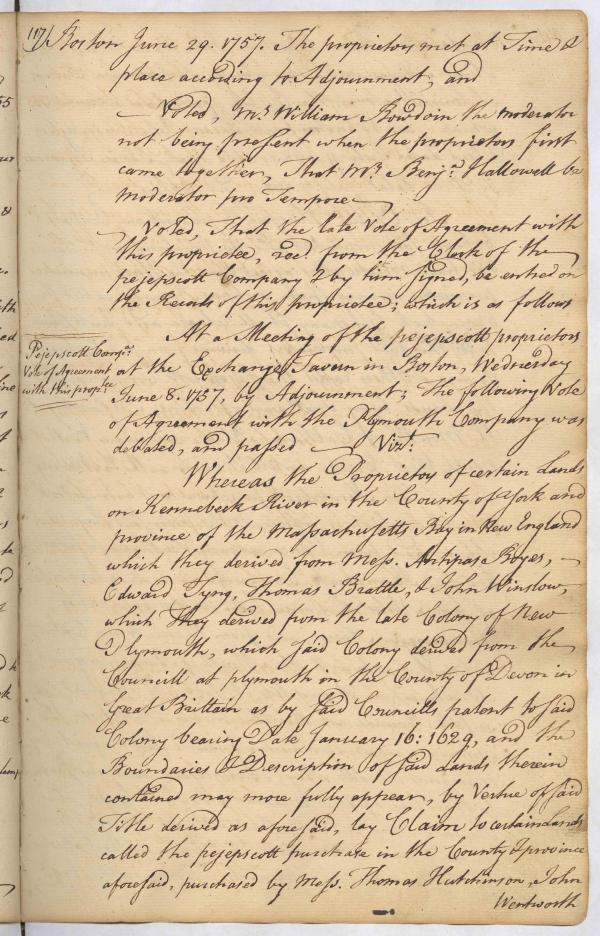 117/ Boston June 29. 1757. The proprietors met at Time &
place according to Adjournment, and
Voted, Mr. William Bowdoin the moderator
not being present when the proprietors first
came together, That Mr. Benja. Hallowell be
moderator pro Tempore
Voted, That the late Vote of Agreement with
this propriotee, recd. from the Clerk of the
pejepscott Company & by him signed, be entred on
the Records of this propriotee; which is as follows
At a Meeting of the pejepscott proprietors
Pejepscott Compa.s
Vote of Agreement
with this prop.tee
at the Exchange Tavern in Boston, Wednesday
June 8. 1757, by Adjournment; The following Vote
of Agreement with the Plymouth Company was
debated, and passed Vizt:
Whereas the Proprietors of certain Lands
on Kennebeck River in the County of York and
province of the Massachusetts Bay in New England
which they derived from Mess. Antipas Boyes,
Edward Tyng, Thomas Brattle, & John Winslow,
which They derived from the late Colony of New
Plymouth, which said Colony derived from the
Councill at plymouth in the County of Devon in
Great Brittain as by said Councills patent to said
Colony bearing Date January 16: 1629, and the
Boundaries & Description of said Lands therein
contained may more fully appear, by Vertue of said
Title derived as aforesaid, lay Claim to certain Lands
called the pejepscott purchase in the County & province
aforesaid, purchased by Mess. Thomas Hutchinson, John
Wentworth